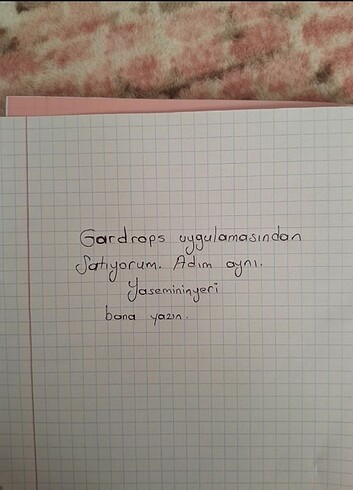 Gardrops uygulamasından
Satıyorum. Adım aynı.
Yasemininyeri
bana yazın.